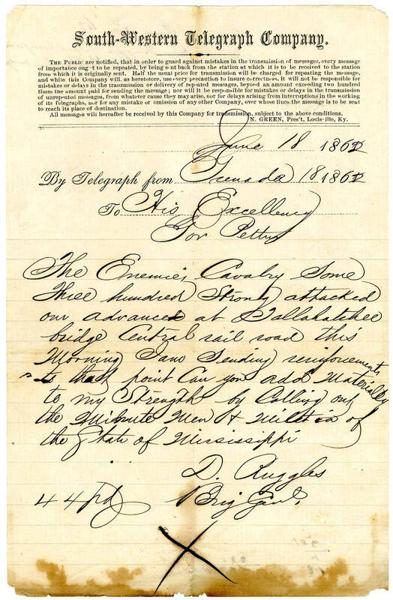 South-Western Telegraph Company.
THE PUBLIC are notified, that in order to guard against mistakes in the transmission of messages, every message
of importance ought to be repeated, by being sent back from the station at which it is to be received to the station
from which it is originally sent. Half the usual price for transmission will be charged for repeating the message,
and while this Company will as heretofore, use every precaution to insure correctness, it will not be responsible for
mistakes or delays in the transmission or delivery of repeated messages, beyond an amount exceeding five hundred
times the amount paid for sending the message; nor will it be responsible for mistakes or delays in the transmission
of unrepeated messages, from whatever cause they may arise, nor for delays arising from interruptions in the working
of its Telegraphs, nor for any mistake or omission of any other Company, over whose lines the message is to be sent
to reach its place of destination.
All messages will hereafter be received by this Company for transmission, subject to the above conditions.
N. GREEN, Pres't, Louisville, Ky.
June 18 1862
By Telegraph from Grenada 18 1862
To His Excellency
Gov Pettus
The Enemies Cavalry Some
Three hundred Strong attacked
our advance at Tallahatchee
bridge Central rail road this
Morning I am Sending reinforcements
to that point Can you add Materially
to my Strength by Calling out
the Minute Men & Militia of
the State of Mississippi
D. Ruggles
Brig Genl.
44 Pd
X